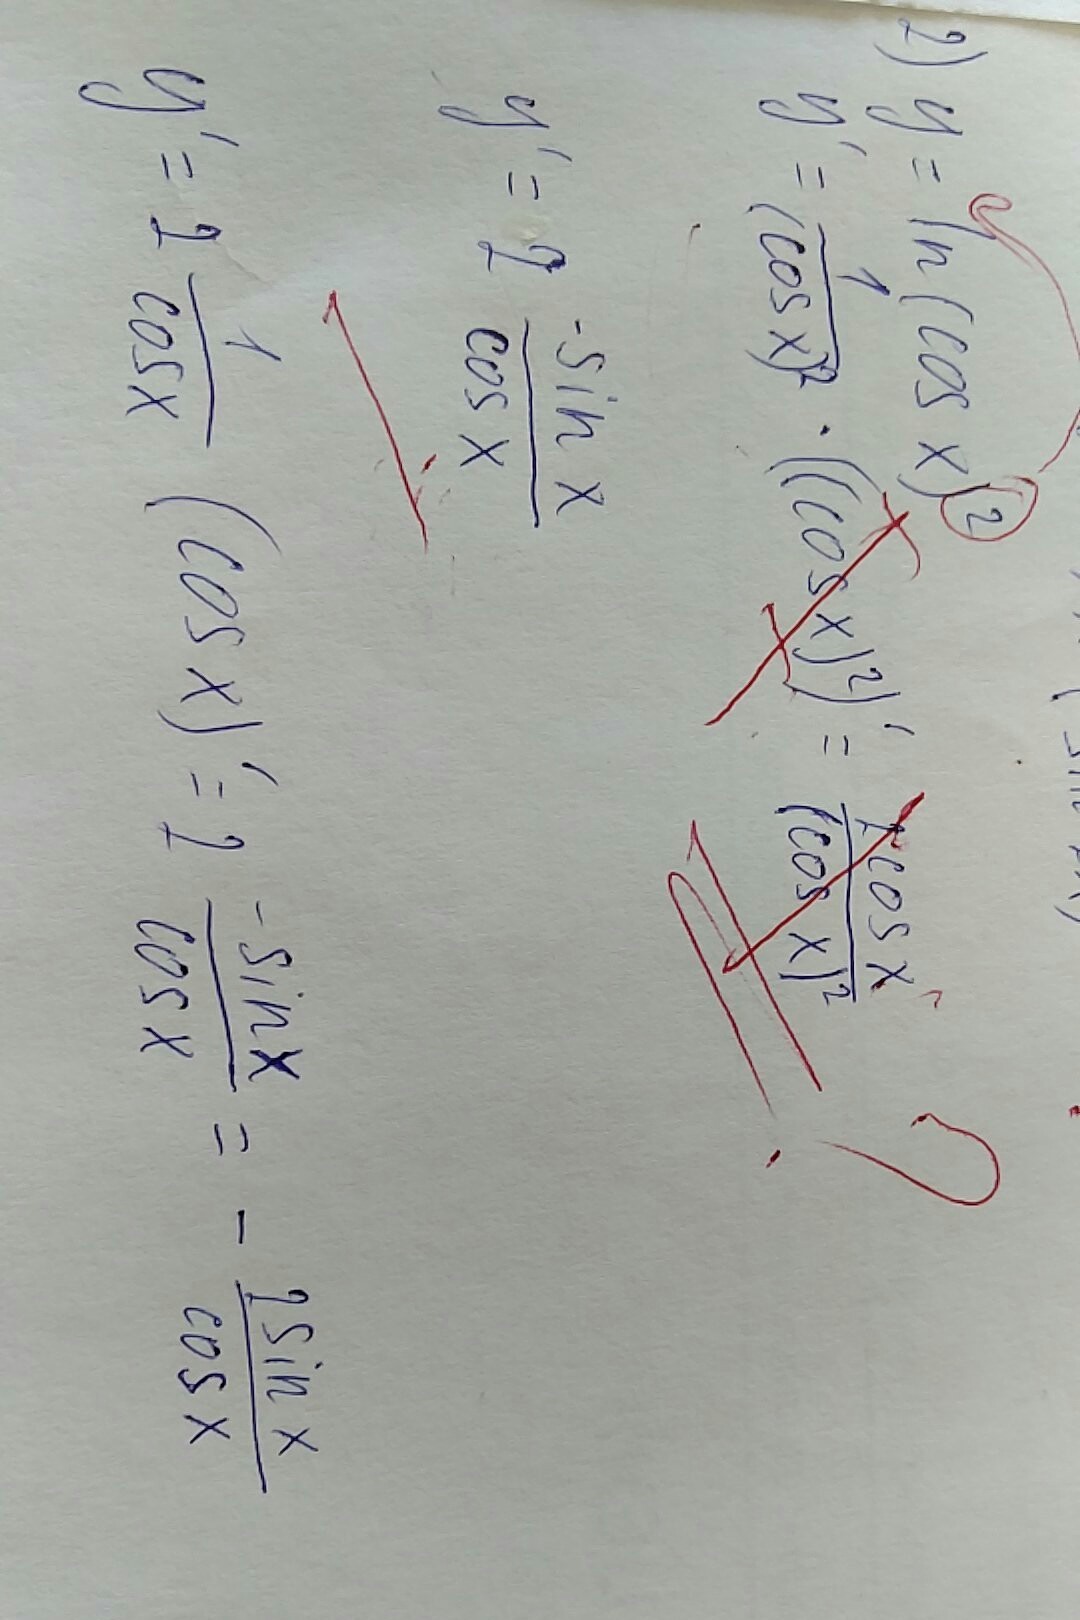 2) y = ln(cos x)²
y' = 1/(cos x)² · ((cos x)²)' = 2cos x/(cos x)²
y' = 2 -sin x/cos x
y' = 2 1/cos x (cos x)' = 2 -sin x/cos x = - 2sin x/cos x